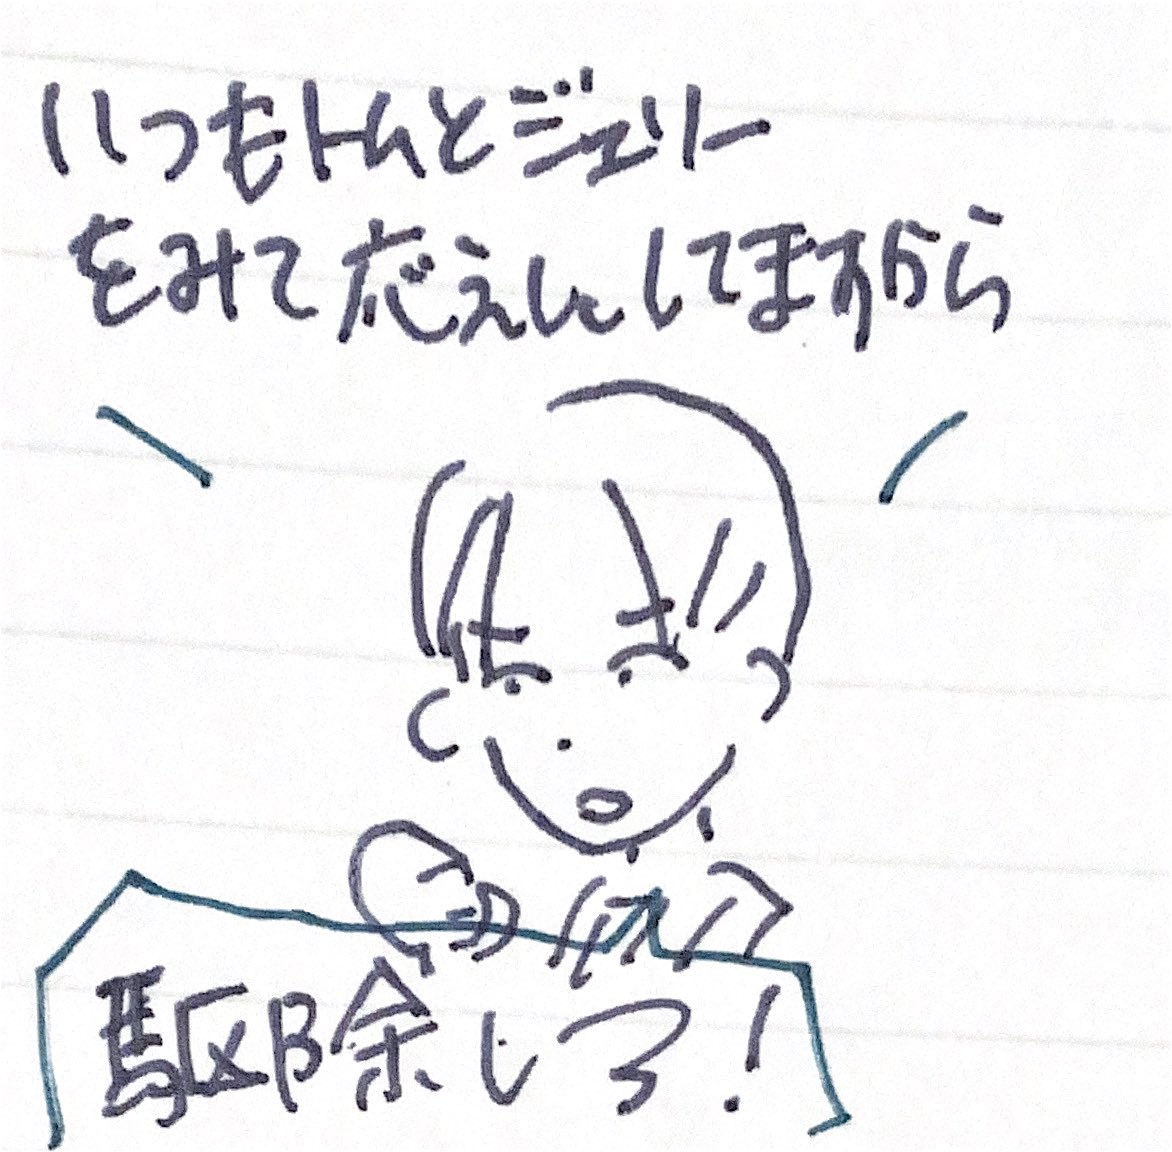 いつもトムとジェリー
をみて応えんしてますから
駆除しろ!